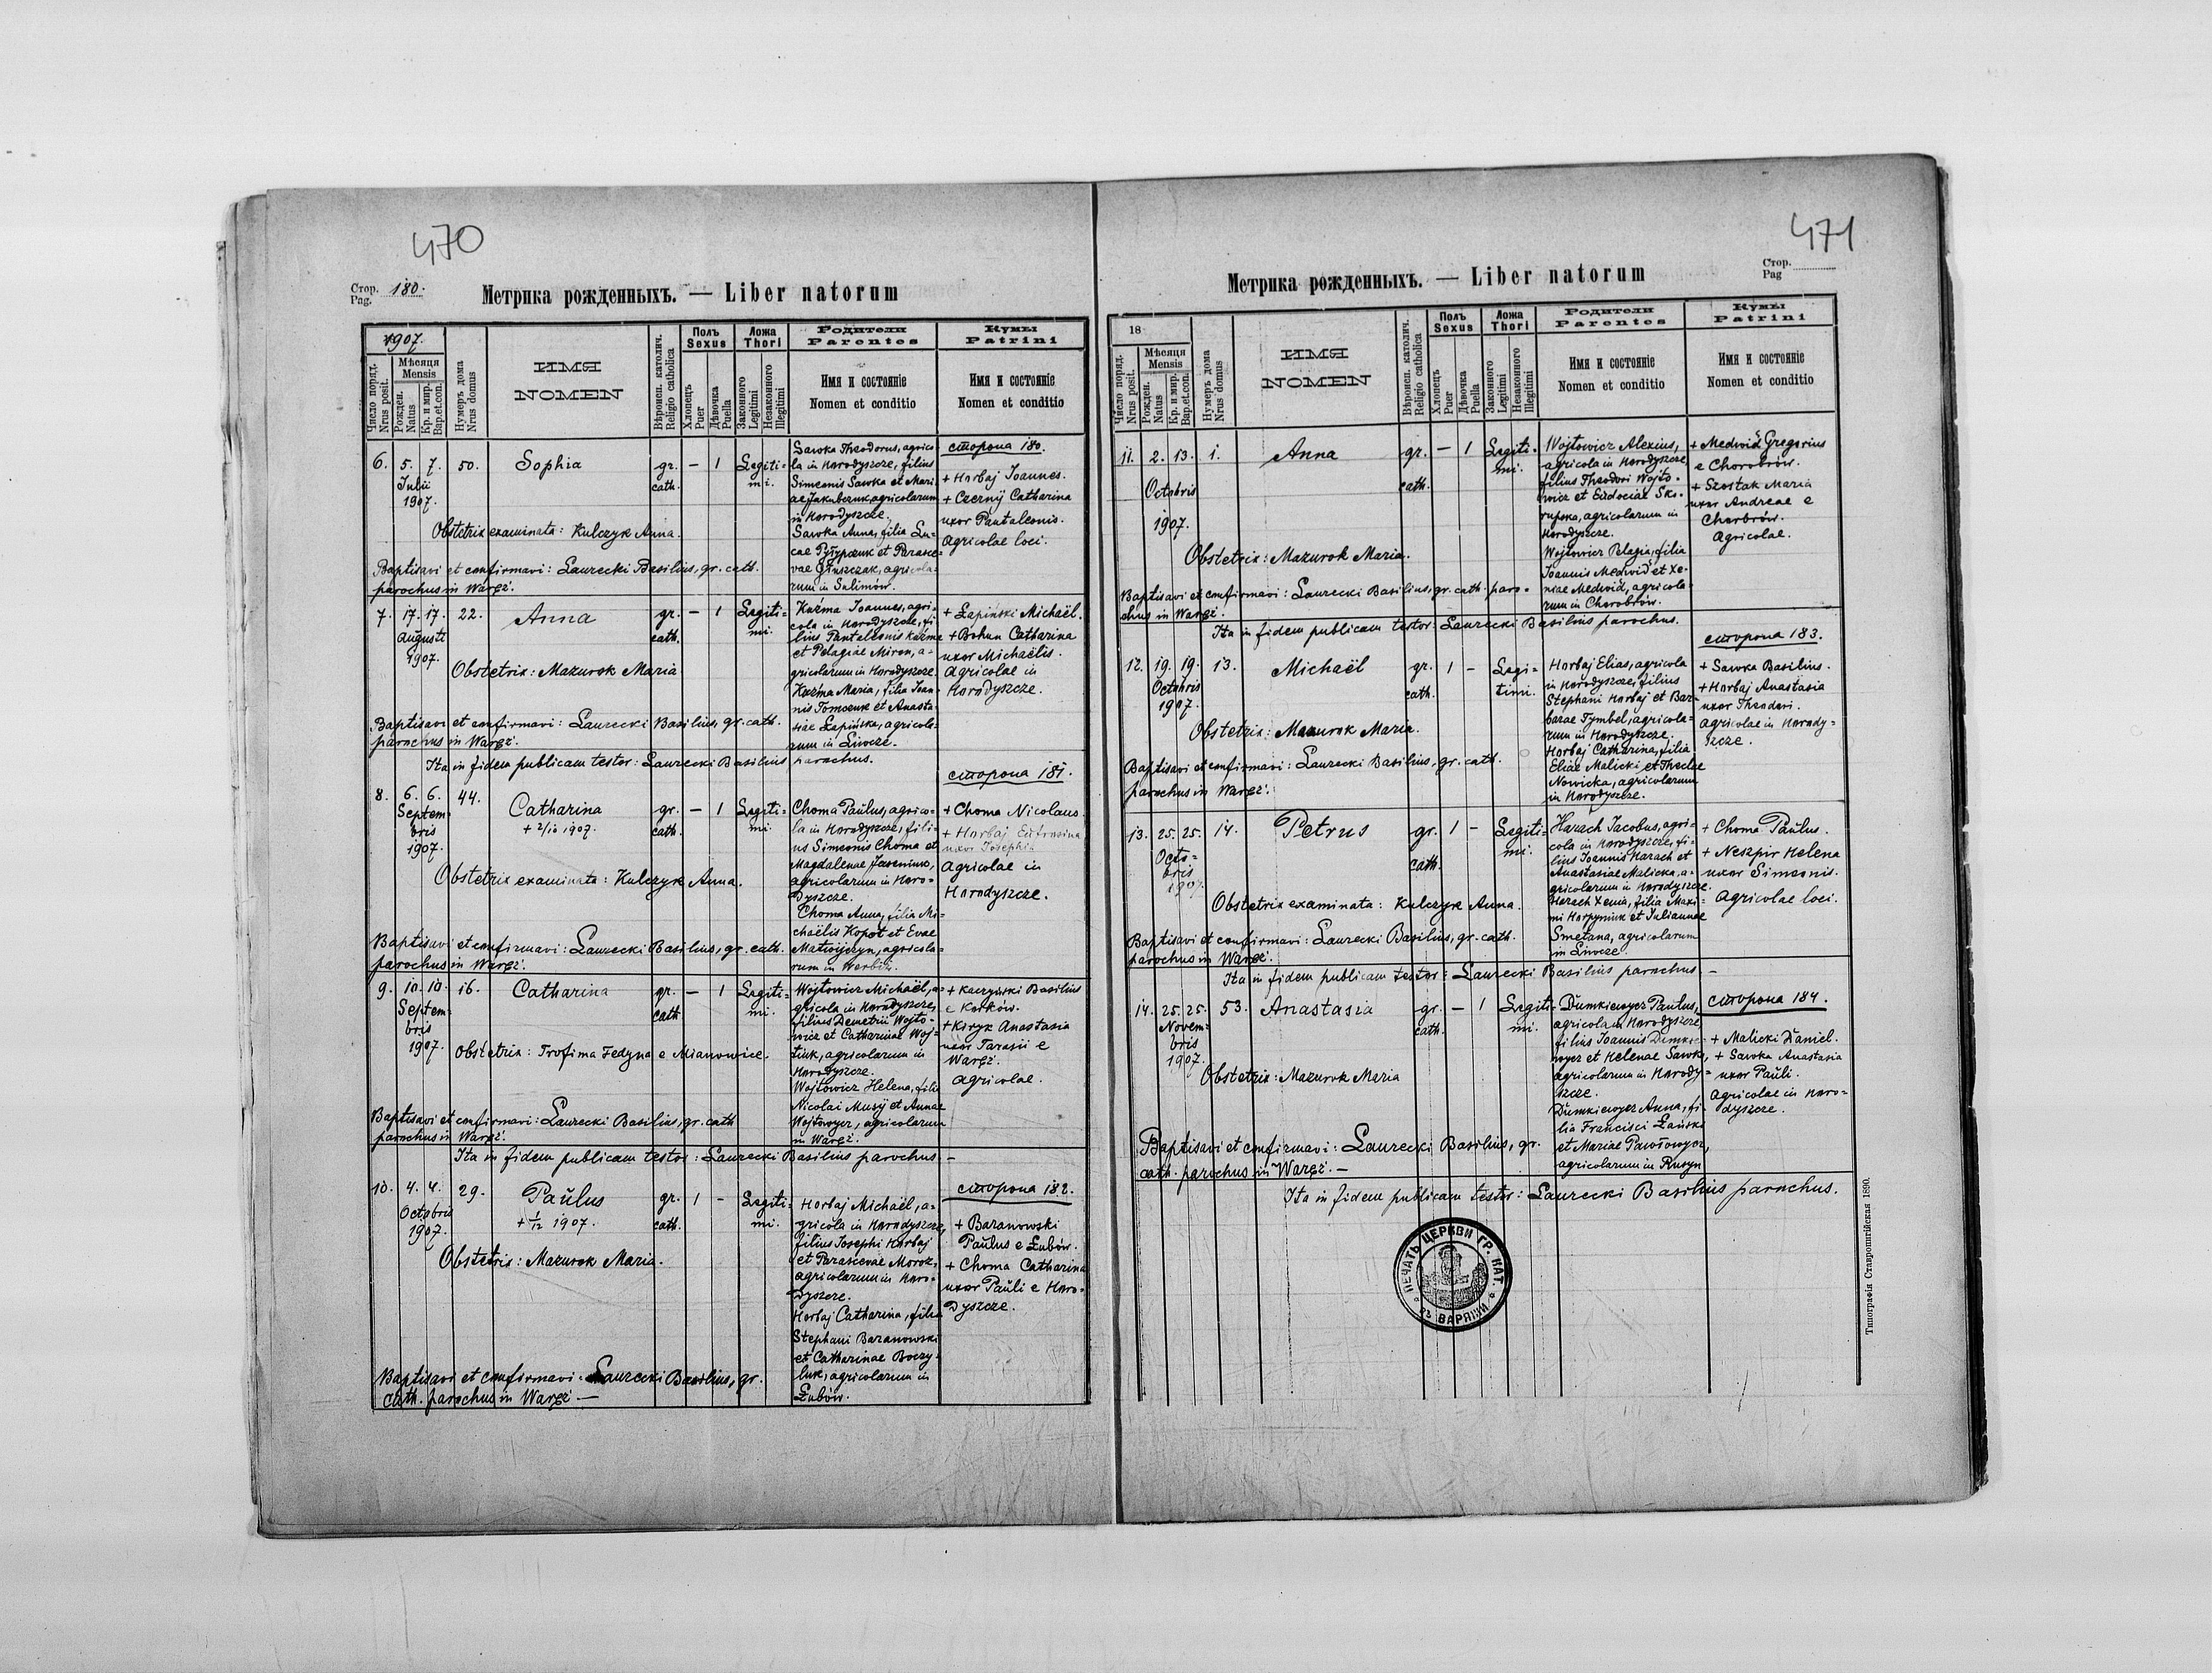 470
Стор. Pag. 180.
Метрика рожденныхъ. — Liber natorum
1907.
Число поряд. Nrus posit.
Мѣсяця Mensis
Рожден. Natus
Кр. и мир. Bap.et.con.
Нумеръ дома Nrus domus
ИМЯ
NOMEN
Вѣроисп. католич. Religio catholica
Полъ Sexus
Хлопецъ Puer
Дѣвочка Puella
Ложа Thori
Законного Legitimi
Незаконного Illegitimi
Родители Parentes
Имя и состоянie
Nomen et conditio
Кумы Patrini
Имя и состоянie
Nomen et conditio
6. 5. 7. 50. Sophia gr. cath. — 1 Legiti=mi.
Julii
1907.
Sawka Theodorus, agrico=
la in Horodyszcze, filius
Simeonis Sawka et Mari=
ae Jakubczuk, agricolarum
in Horodyszcze.
Sawka Anna, filia Lu=
cae Pyłypczuk et Parasce=
vae Hłuszczak, agricola=
rum in Sulimów.
сторона 180.
+ Horbaj Joannes.
+ Czernij Catharina
uxor Pantaleonis.
Agricolae loci.
Obstetrix examinata: Kulczyk Anna.
Baptisavi et confirmavi: Laurecki Basilius, gr. cath.
parochus in Waręż.
7. 17. 17. 22. Anna gr. cath. — 1 Legiti=mi.
Augusti
1907.
Kuźma Joannes, agri=
cola in Horodyszcze, fi=
lius Pantaleonis Kuźma
et Pelagiae Miron, a=
gricolarum in Horodyszcze.
Kuźma Maria, filia Joan=
nis Tomczuk et Anasta=
siae Łapińska, agricola=
rum in Liwcze.
+ Łapiński Michaël.
+ Bohun Catharina
uxor Michaëlis.
Agricolae in
Horodyszcze.
Obstetrix: Mazurok Maria
Baptisavi et confirmavi: Laurecki Basilius, gr. cath.
parochus in Waręż.
Ita in fidem publicam testor: Laurecki Basilius parochus.
8. 6. 6. 44. Catharina gr. cath. — 1 Legiti=mi.
Septem=
bris
1907.
+ 2/10 1907.
Choma Paŭlus, agrico=
la in Horodyszcze, fili=
us Simeonis Choma et
Magdalenae
agricolarum in Horo=
dyszcze.
Choma Anna, filia Mi=
chaëlis Kopot et Evae
Matwijczyn, agricola=
rum in Werbiż.
сторона 181.
+ Choma Nicolaus
+ Horbaj Eufrosina
uxor Josephi.
Agricolae in
Horodyszcze.
Obstetrix examinata: Kulczyk Anna.
Baptisavi et confirmavi: Laurecki Basilius, gr. cath.
parochus in Waręż.
9. 10. 10. 16. Catharina gr. cath — 1 Legiti=mi.
Septem=
bris
1907.
Wojtowicz Michaël, a=
gricola in Horodyszcze,
filius Demetrii Wojto=
wicz et Catharinae Woj=
tiuk, agricolarum in
Horodyszcze.
Wojtowicz Helena, filia
Nicolai Musij et Annae
Wojtowycz, agricolarum
in Waręż.
+ Kaczyński Basilius
e Korków.
+ Kiryk Anastasia
uxor Tarasii e
Waręż.
Agricolae.
Obstetrix: Trofima Fedyna e Mianowice.
Baptisavi et confirmavi: Laurecki Basilius, gr. cath
parochus in Waręż.
Ita in fidem publicam testor: Laurecki Basilius parochus. —
10. 4. 4. 29. Paŭlus gr. cath. 1 — Legiti=mi.
Octobris
1907.
+ 1/12 1907.
Horbaj Michaël, a=
gricola in Horodyszcze,
filius Josephi Horbaj
et Parascevae Moroz,
agricolarum in Horo=
dyszcze.
Horbaj Catharina, filia
Stephani Baranowski
et Catharinae Boczy=
luk, agricolarum in
Łubów.
сторона 182.
+ Baranowski
Paŭlus e Łubów.
+ Choma Catharina
uxor Paŭli e Horo=
dyszcze.
Obstetrix: Mazurok Maria.
Baptisavi et confirmavi: Laurecki Basilius, gr.
cath. parochus in Waręż —
471
Стор. Pag
Метрика рожденныхъ. — Liber natorum
18
Число поряд. Nrus posit.
Мѣсяця Mensis
Рожден. Natus
Кр. и мир. Bap.et.con.
Нумеръ дома Nrus domus
ИМЯ
NOMEN
Вѣроисп. католич. Religio catholica
Полъ Sexus
Хлопецъ Puer
Дѣвочка Puella
Ложа Thori
Законного Legitimi
Незаконного Illegitimi
Родители Parentes
Имя и состоянie
Nomen et conditio
Кумы Patrini
Имя и состоянie
Nomen et conditio
11. 2. 13. 1. Anna gr. cath. — 1 Legiti=mi.
Octobris
1907.
Wojtowicz Alexius,
agricola in Horodyszcze,
filius Theodori Wojto=
wicz et Eudociae Sko=
rupska, agricolarum in
Horodyszcze.
Wojtowicz Pelagia, filia
Joannis Medwid et Xe=
niae Medwid, agricola=
rum in Chorobrów.
+ Medwid Gregorius
e Chorobrów.
+ Szostak Maria
uxor Andreae e
Chorbrów.
Agricolae.
Obstetrix: Mazurok Maria.
Baptisavi et confirmavi: Laurecki Basilius, gr. cath. paro=
chus in Waręż.
Ita in fidem publicam testor: Laurecki Basilius parochus.
12. 19. 19. 13. Michaël gr. cath. 1 — Legi=timi.
Octobris
1907.
Horbaj Elias, agricola
in Horodyszcze, filius
Stephani Horbaj et Bar=
barae Tymbel, agricola=
rum in Horodyszcze.
Horbaj Catharina, filia
Eliae Malicki et Theclae
Nowicka, agricolarum
in Horodyszcze.
сторона 183.
+ Sawka Basilius.
+ Horbaj Anastasia
uxor Theodori.
Agricolae in Horody=
szcze.
Obstetrix: Mazurok Maria.
Baptisavi et confirmavi: Laurecki Basilius, gr. cath.
parochus in Waręż.
13. 25. 25. 14. Petrus gr. cath. 1 — Legiti=mi.
Octo=
bris
1907.
Harach Jacobus, agri=
cola in Horodyszcze, fi=
lius Joannis Harach et
Anastasiae Malicka, a=
gricolarum in Horodyszcze.
Harach Xenia, filia Maxi=
mi Harpyniuk et Julianae
Smetana, agricolarum
in Liwcze.
+ Choma Paŭlus.
+ Neszpir Helena
uxor Simeonis.
Agricolae loci.
Obstetrix examinata: Kulczyk Anna.
Baptisavi et confirmavi: Laurecki Basilius, gr. cath.
parochus in Waręż.
Ita in fidem publicam testor: Laurecki Basilius parochus —
14. 25. 25. 53. Anastasia gr. cath. — 1 Legiti=mi.
Novem=
bris
1907.
Dumkiewycz Paulus,
agricola in Horodyszcze,
filius Joannis Dumkie=
wycz et Helenae Sawka,
agricolarum in Horody=
szcze.
Dumkiewycz Anna, fi=
lia Francisci Łański
et Mariae Pawłowycz,
agricolarum in Rusyn
сторона 184.
+ Malicki Daniel.
+ Sawka Anastasia
uxor Paŭli.
Agricolae in Horo=
dyszcze.
Obstetrix: Mazurok Maria
Baptisavi et confirmavi: Laurecki Basilius, gr.
cath. parochus in Waręż. —
Ita in fidem publicam testor: Laurecki Basilius parochus.
ПЕЧАТЬ ЦЕРКВИ ГР. КАТ. ВЪ ВАРЯЖИ
Типографія Ставропигійская 1890.